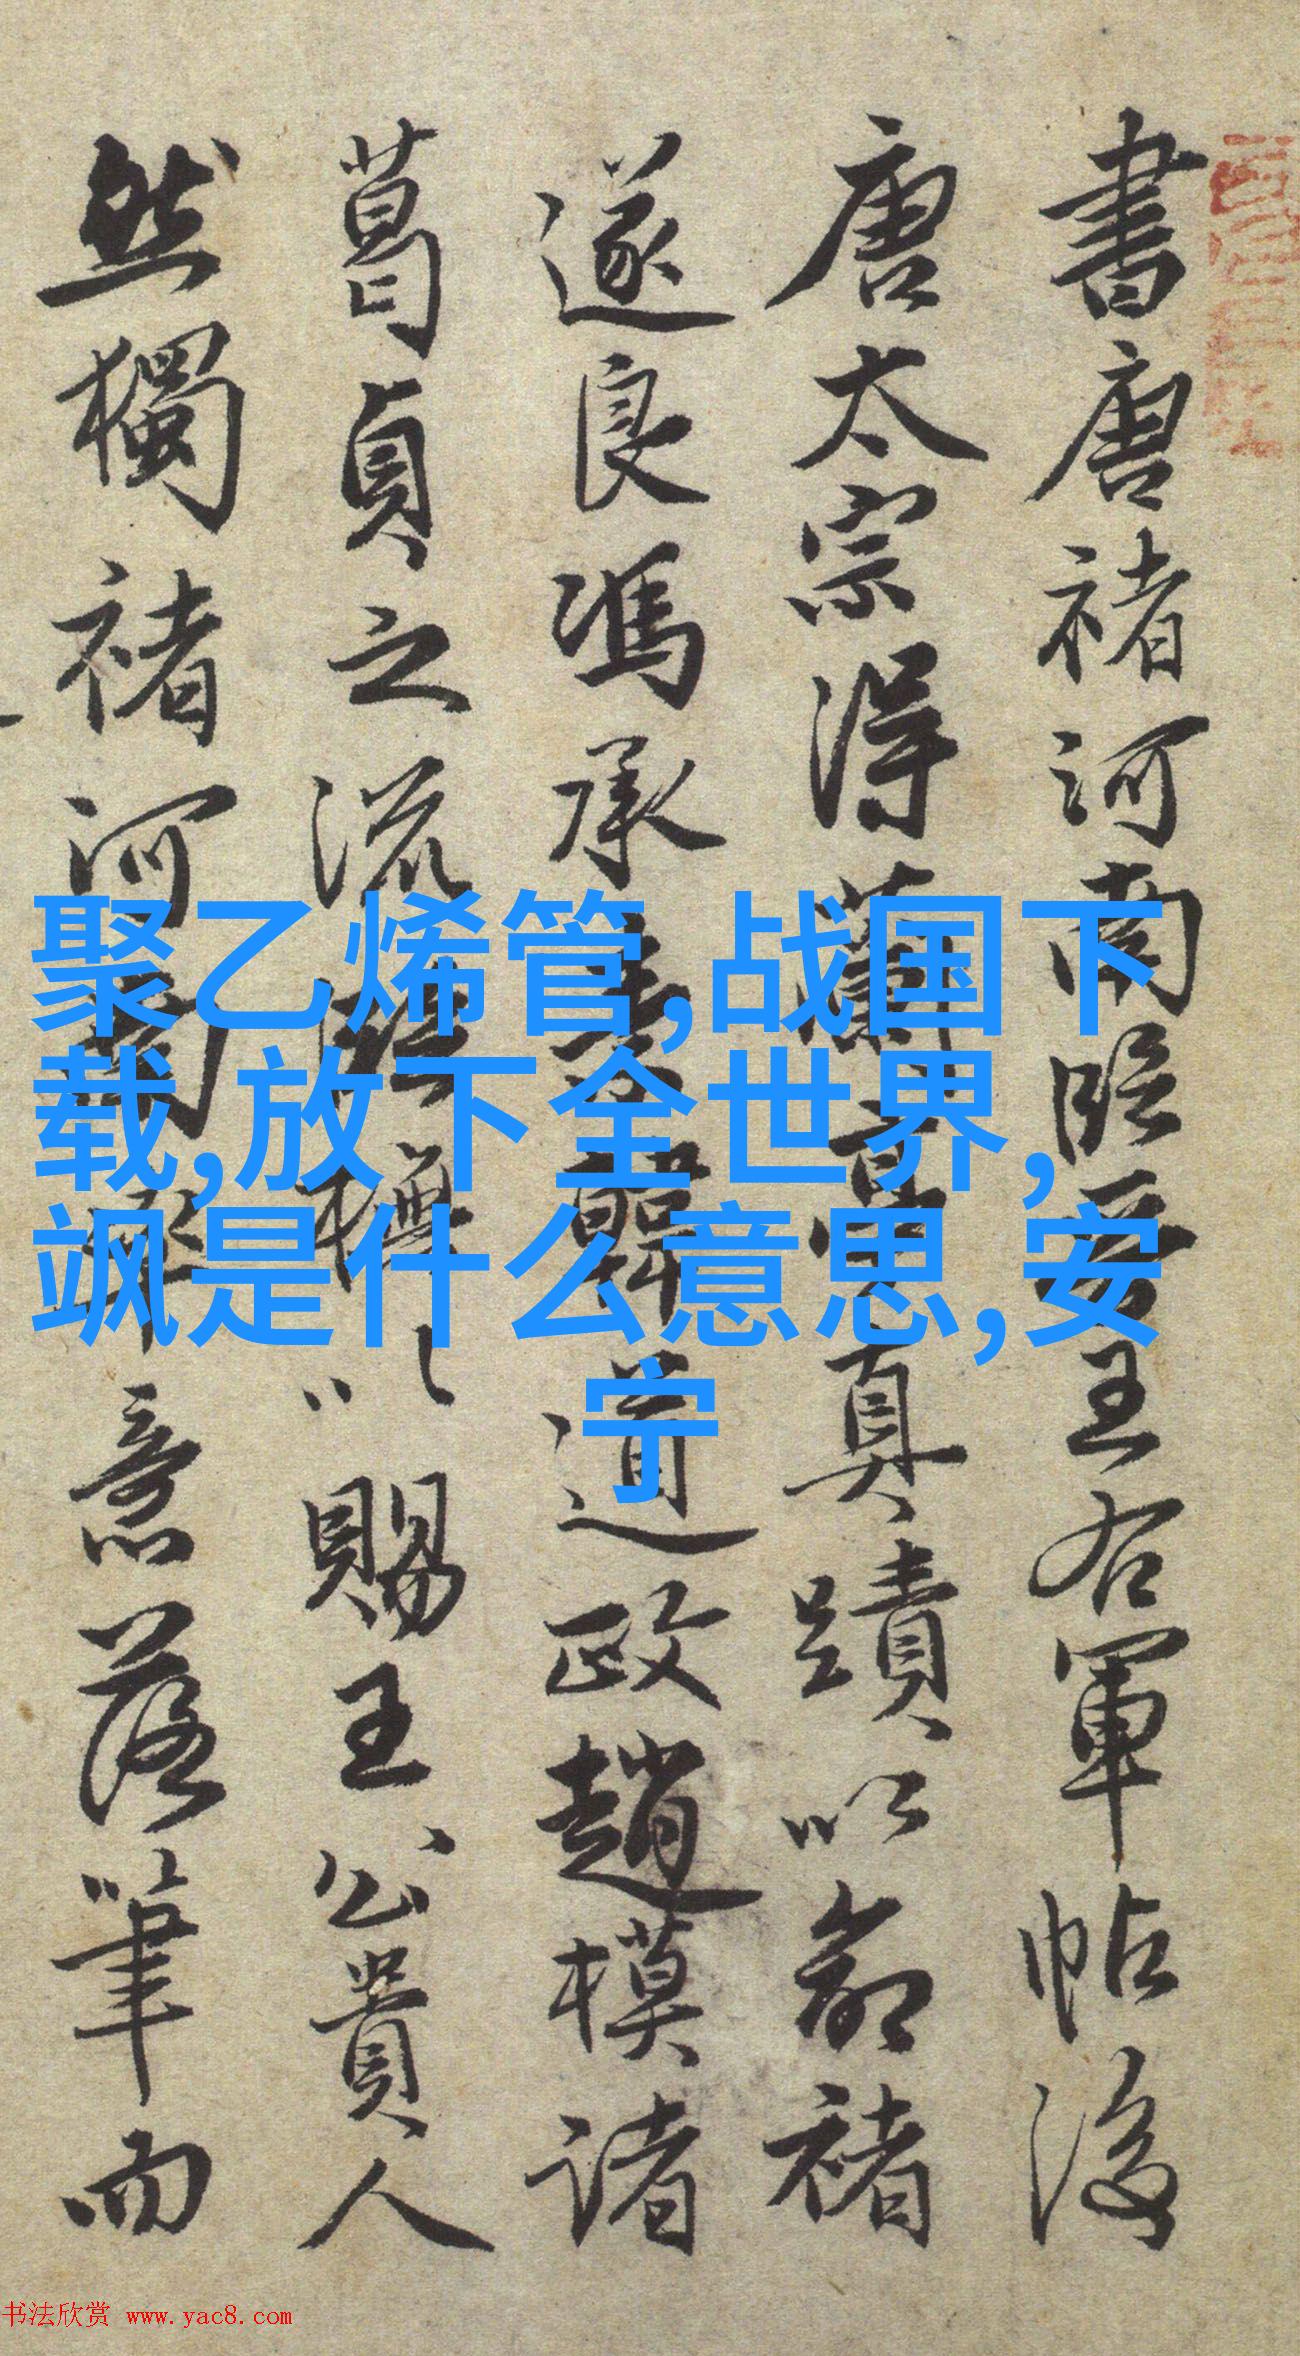 書唐褚河南臨王右軍帖後
唐太宗得蘭亭真蹟以命褚
遂良馮承素韓道政趙模諸
葛貞之流 賜王公貴人
然獨褚河南 意落筆而
聚乙烯管,战国下
载,放下全世界,
飒是什么意思,安
宁
书法欣赏 www.yac8.com